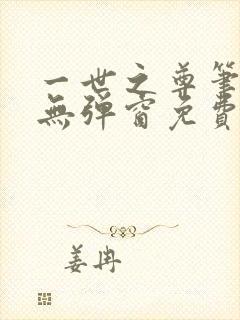 一世之尊筆
無彈窗免費
姜冉